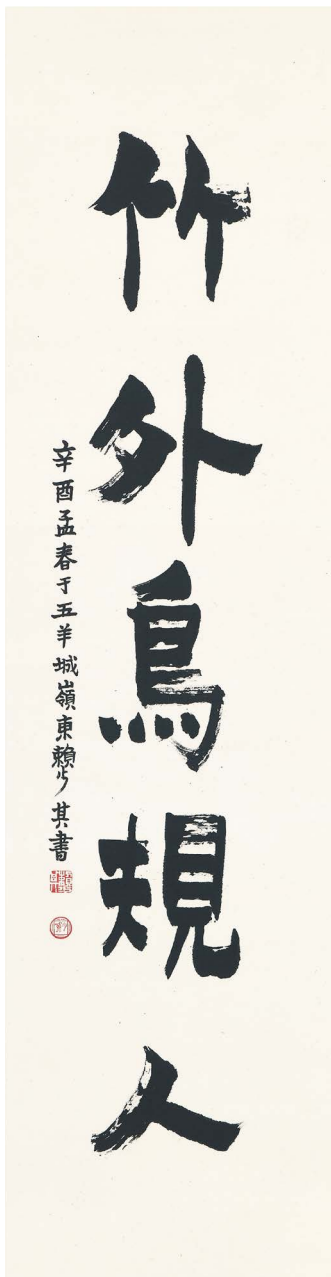 竹外鳥規人
辛酉孟春于五羊城嶺東賴少其書